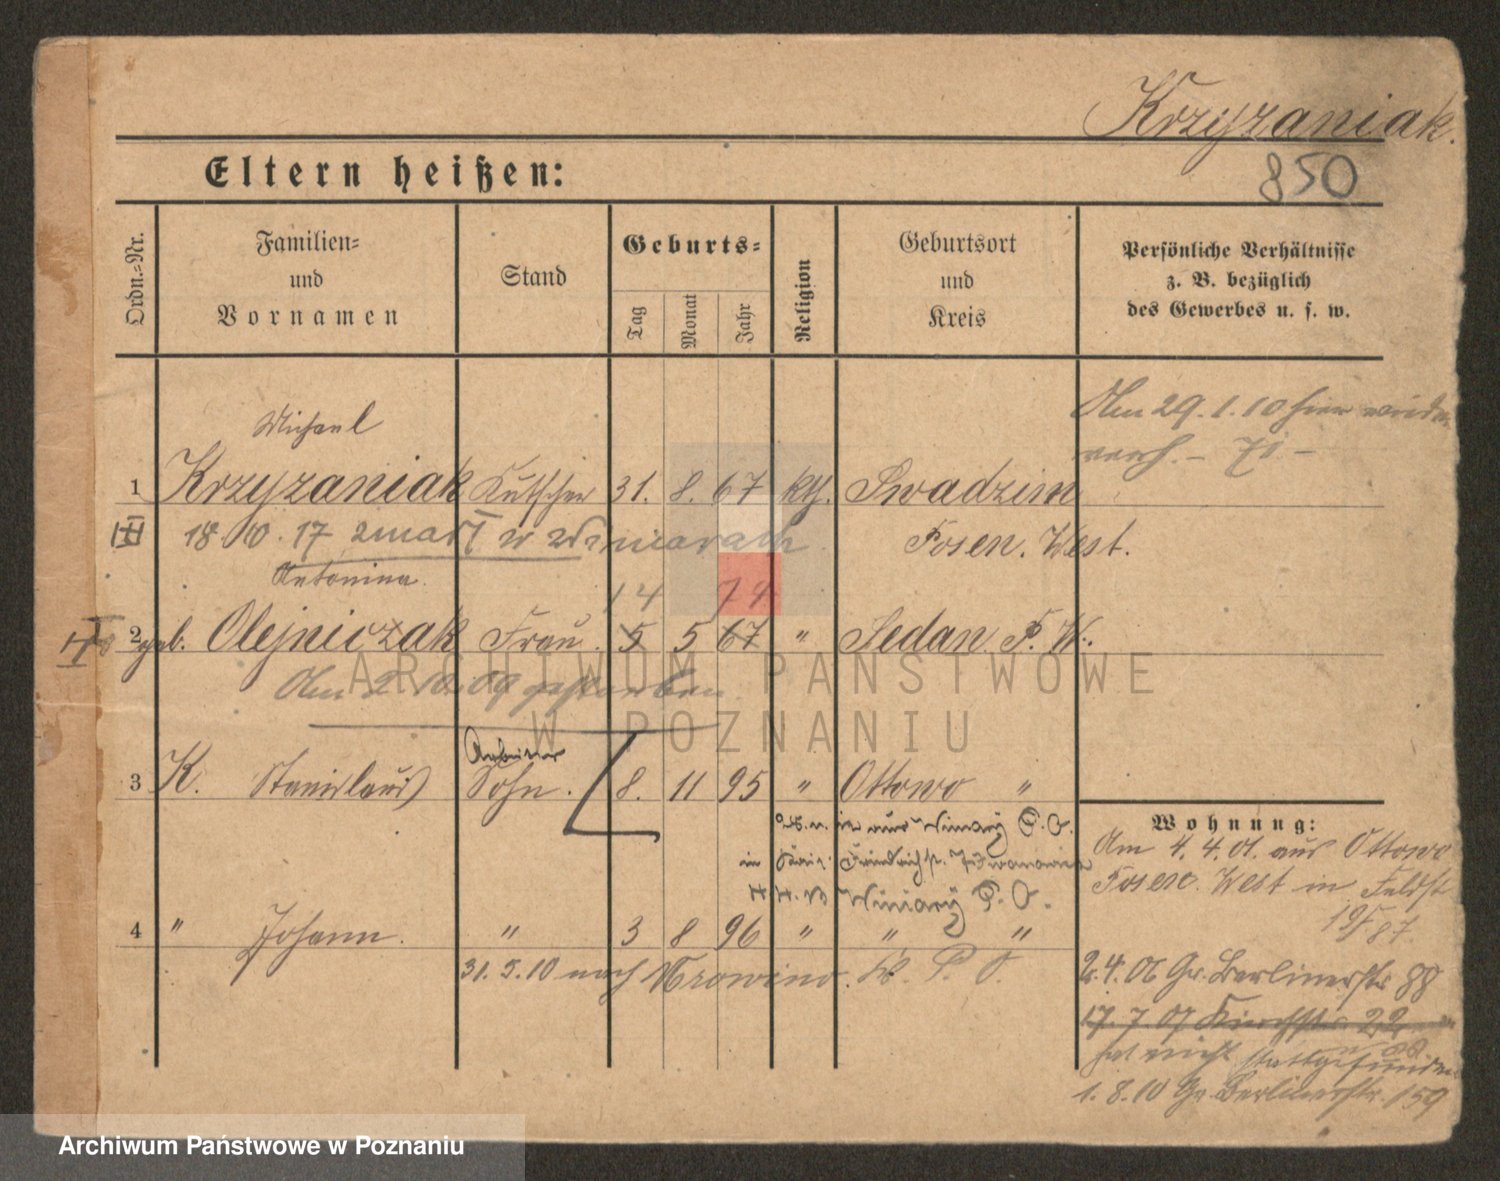 Krzyzaniak.
850
Eltern heißen:
Ordn.=Nr.
Familien=
und
Vornamen
Stand
Geburts=
Tag
Monat
Jahr
Religion
Geburtsort
und
Kreis
Persönliche Verhältnisse
z. B. bezüglich
des Gewerbes u. s. w.
Am 29.1.10 hier wieder
Michael
1 Krzyzaniak Kutscher 31. 8. 67 kth. Swadzim
18. 10. 17 zmarł w Winiarach
Posen. West.
Antonina
14 74
2 geb. Olejniczak Frau. 5 5 67 " Sedan P. W.
Am 2. 10. 09 gestorben
Arbeiter
3 K. Stanislaus Sohn. 8. 11 95 " Ottowo "
Winiary P. O.
4 " Johann. " 3 8 96 " " "
31. 5. 10 nach Mrowino. P. O.
Wohnung:
Am 4. 4. 01. aus Ottowo
Posen. West in Feldst
87.
2.4.06 Gr. Berlinerstr 88
17. 7 07 Kirchstr. 22
hat nicht stattgefunden
1. 8. 10 Gr. Berlinerstr. 159
ARCHIWUM PAŃSTWOWE
W POZNANIU
Archiwum Państwowe w Poznaniu